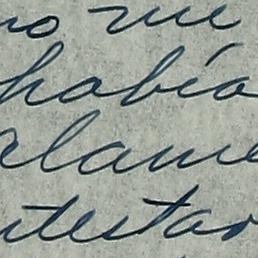 no me
había
rlame
ntestar